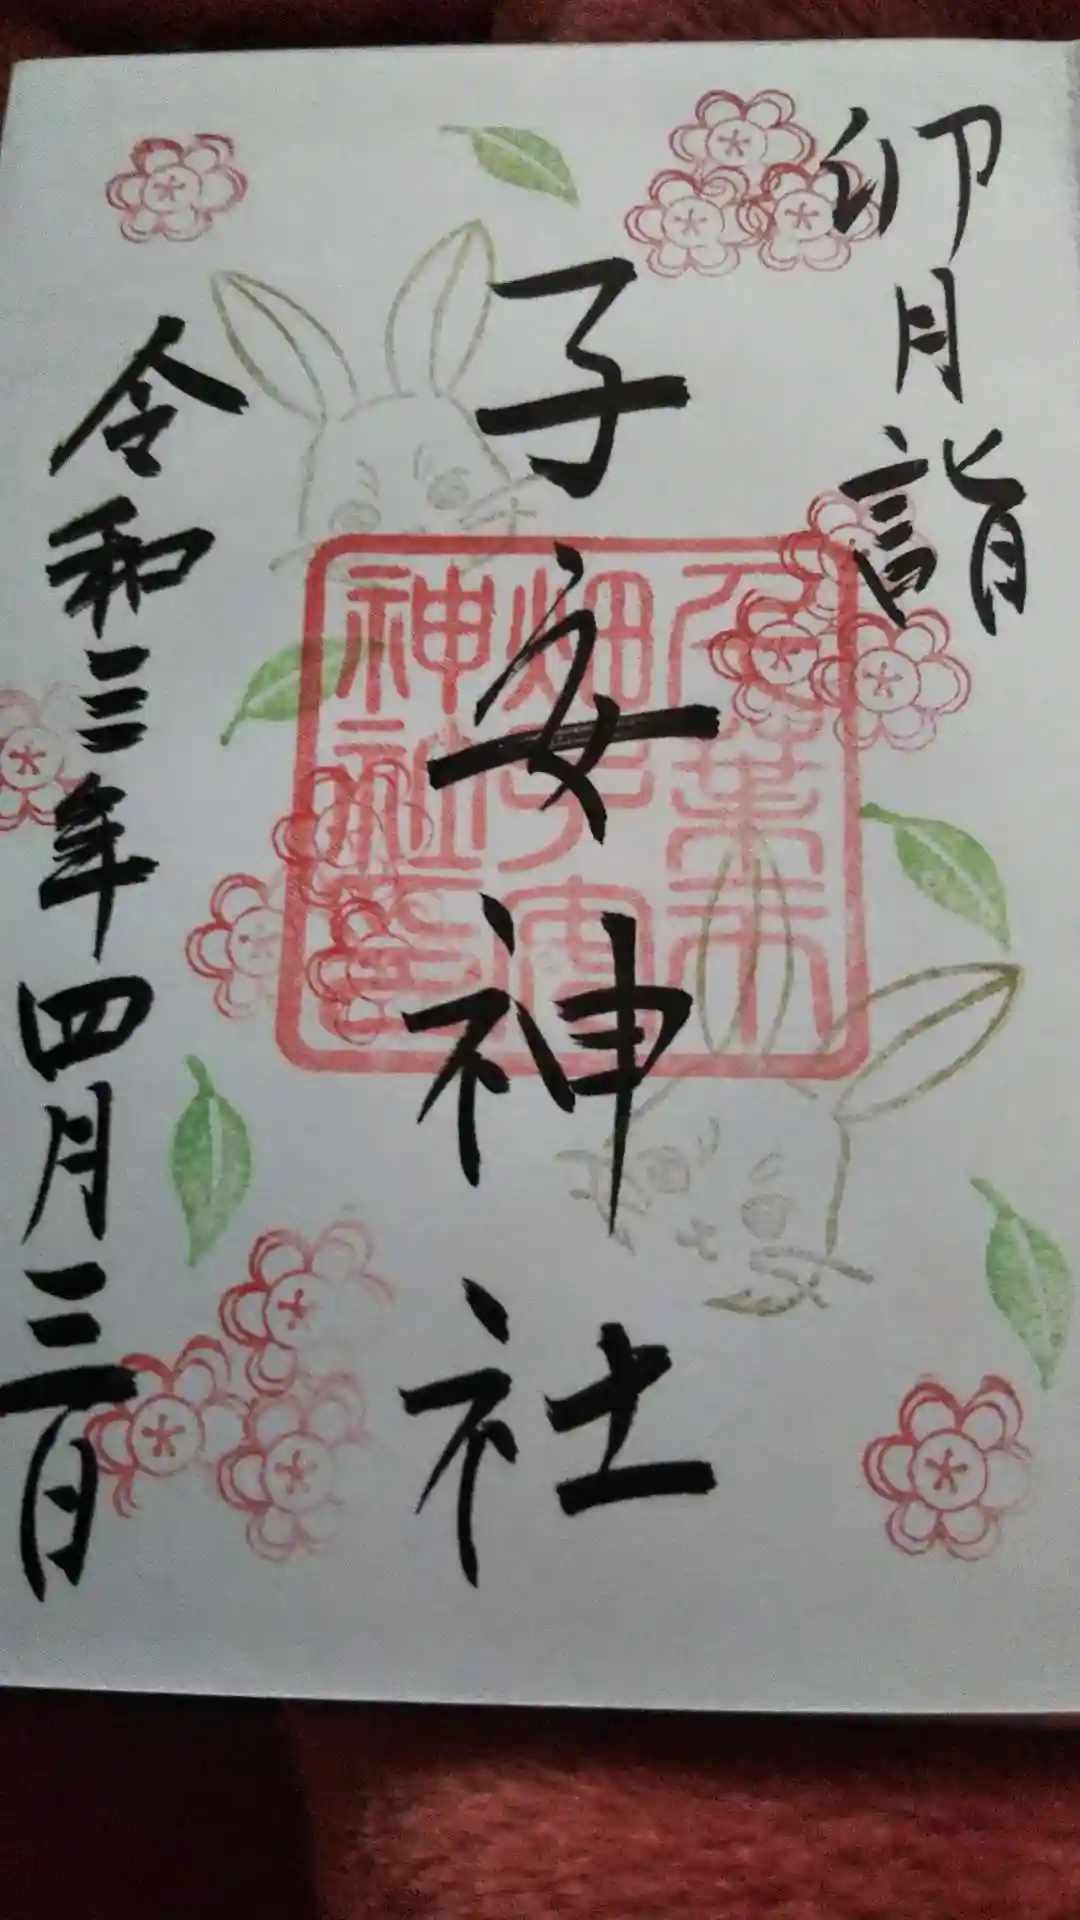 卯月詣
子安神社
千葉市
畑子安
神社印
令和三年四月三日